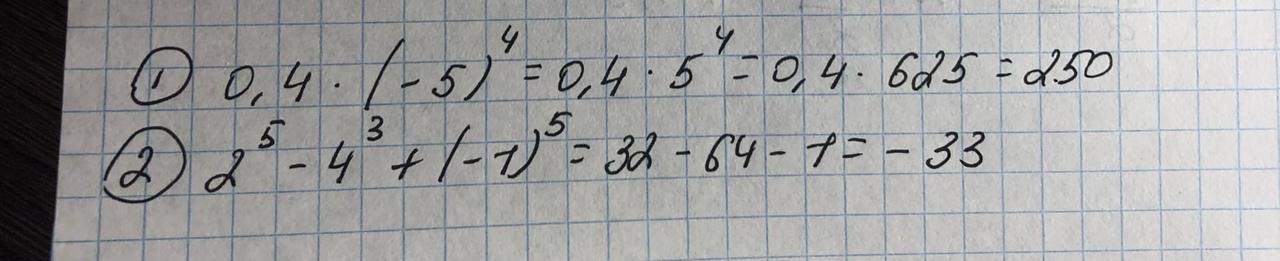 ① 0,4 · (-5)⁴ = 0,4 · 5⁴ = 0,4 · 625 = 250
② 2⁵ - 4³ + (-1)⁵ = 32 - 64 - 1 = - 33